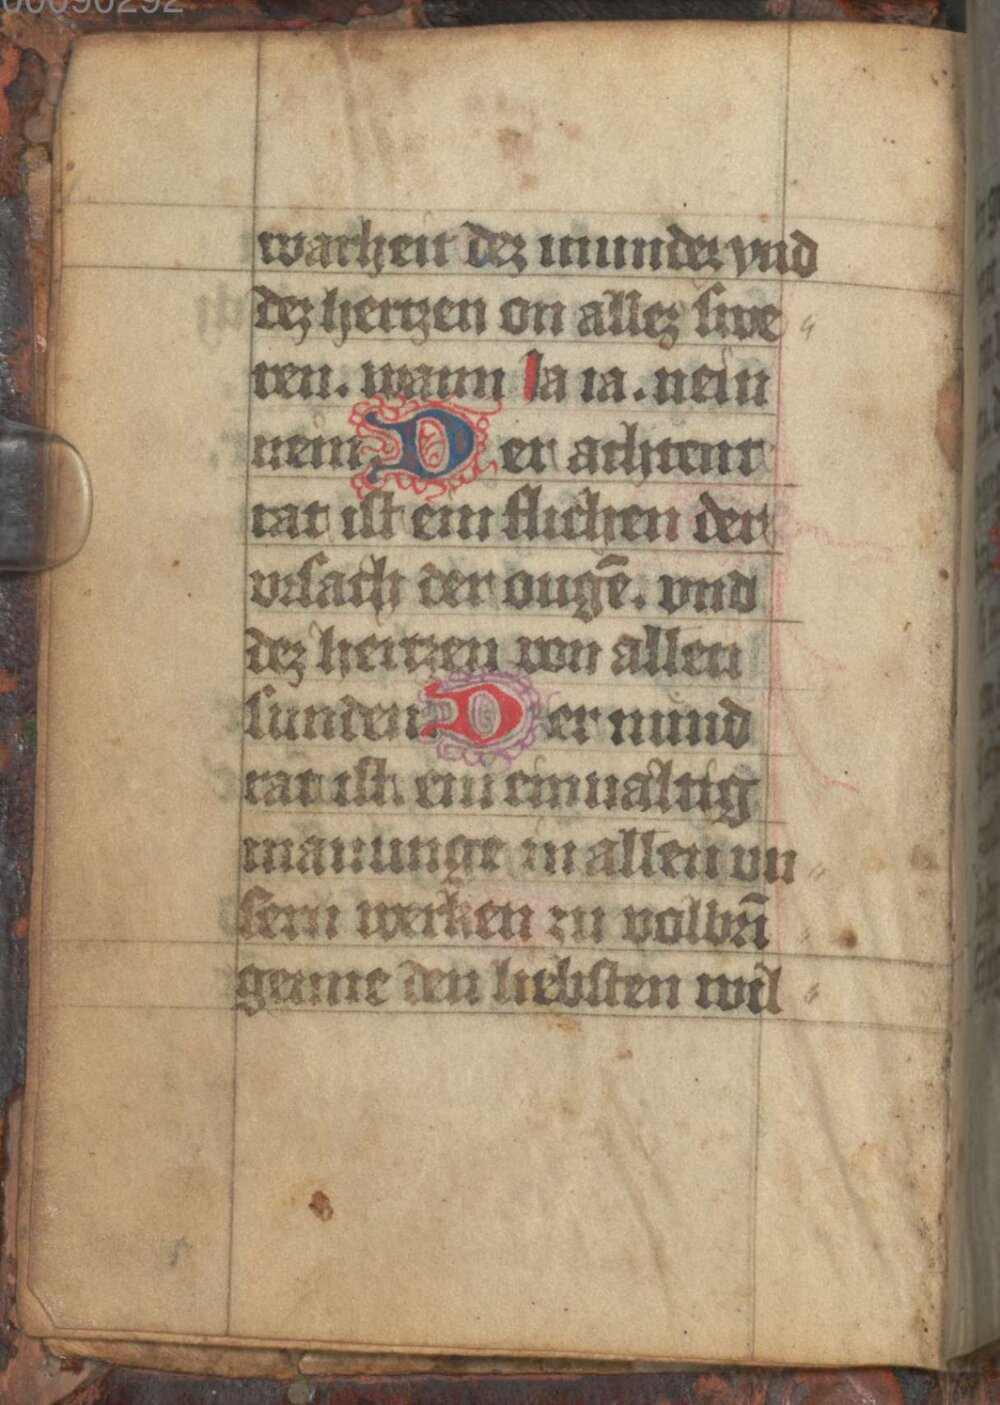 00090292
warheit dez mundez vnd
dez hertzen on allez swe
ren. wann Ia ia. nein
nein. Der achtent
rat ist ein flichen der
vrsach der ougē. vnd
dez hertzen von allen
sunden. Der nund
rat ist ein einualtig
manunge in allen vn
sern werken zu volbrī
genne den liebsten wil